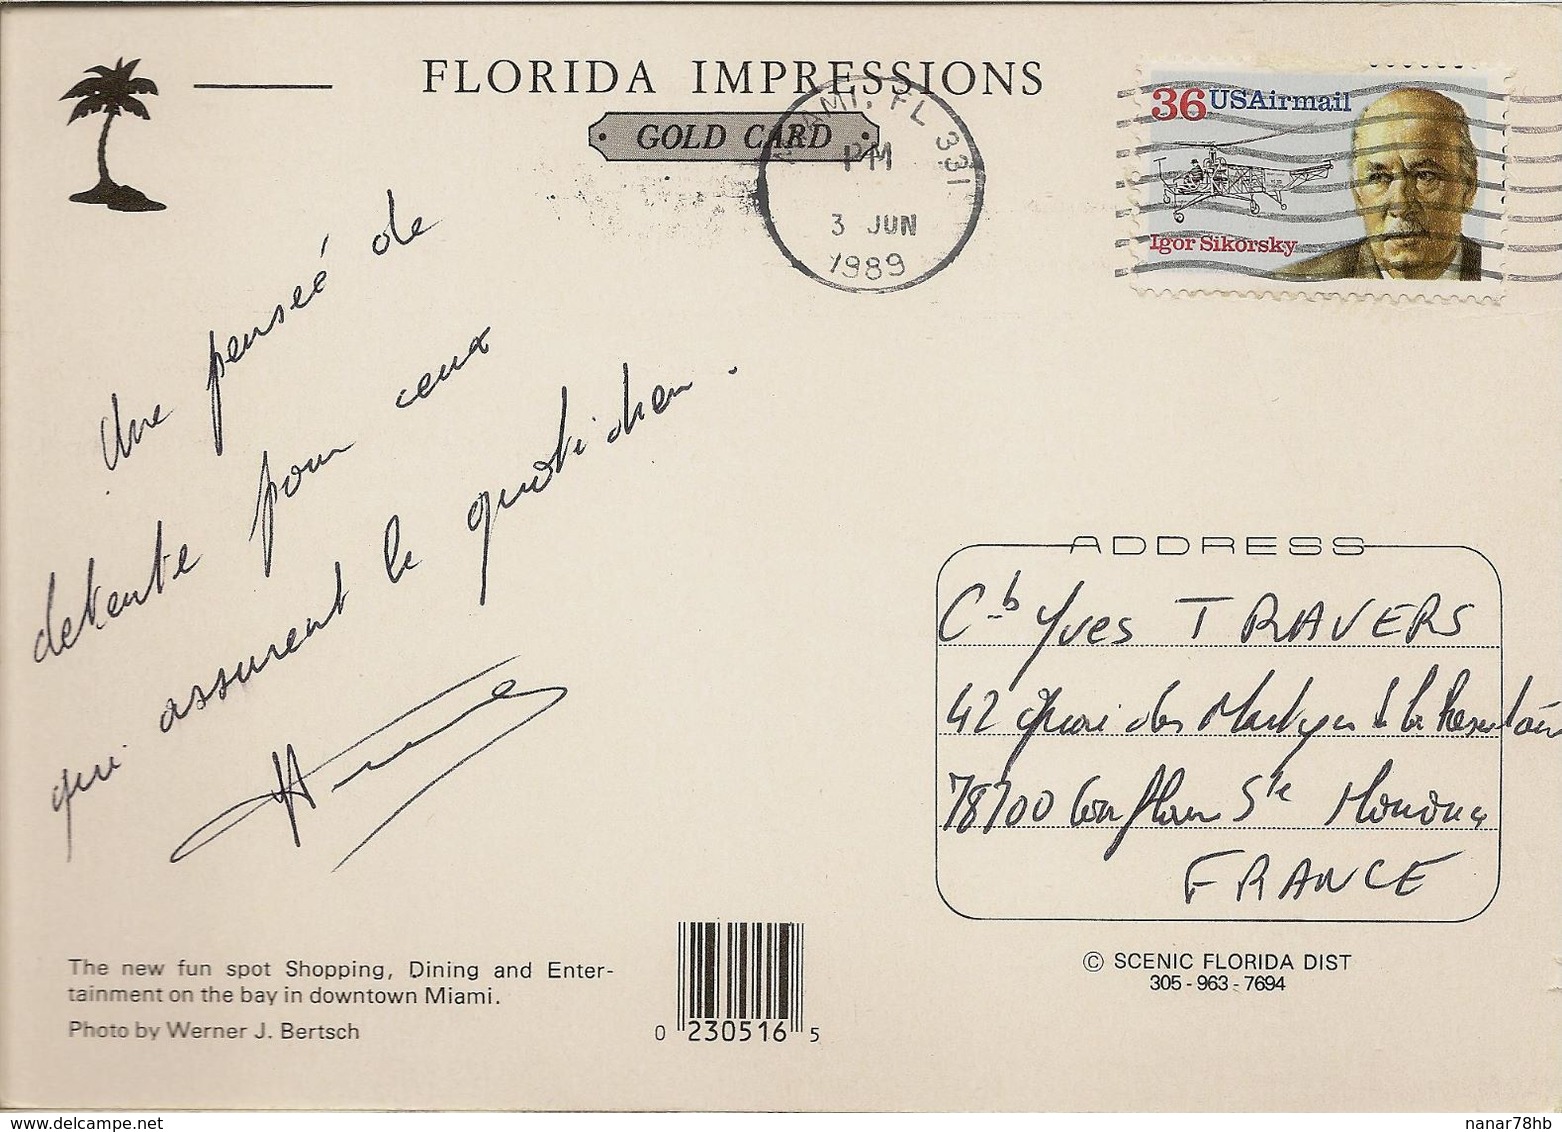 FLORIDA IMPRESSIONS
GOLD CARD
MIAMI, FL 331
PM
3 JUN
1989
36 USAirmail
Igor Sikorsky
Une penseé de
detente pour ceux
qui assurent le quotidien.
ADDRESS
C-b Yves TRAVERS
42 Quai des Martyrs de la Resistance
78700 Conflans Ste Honorine
FRANCE
The new fun spot Shopping, Dining and Enter-
tainment on the bay in downtown Miami.
Photo by Werner J. Bertsch
0 230516 5
© SCENIC FLORIDA DIST
305-963-7694
nanar78hb
delcampe.net